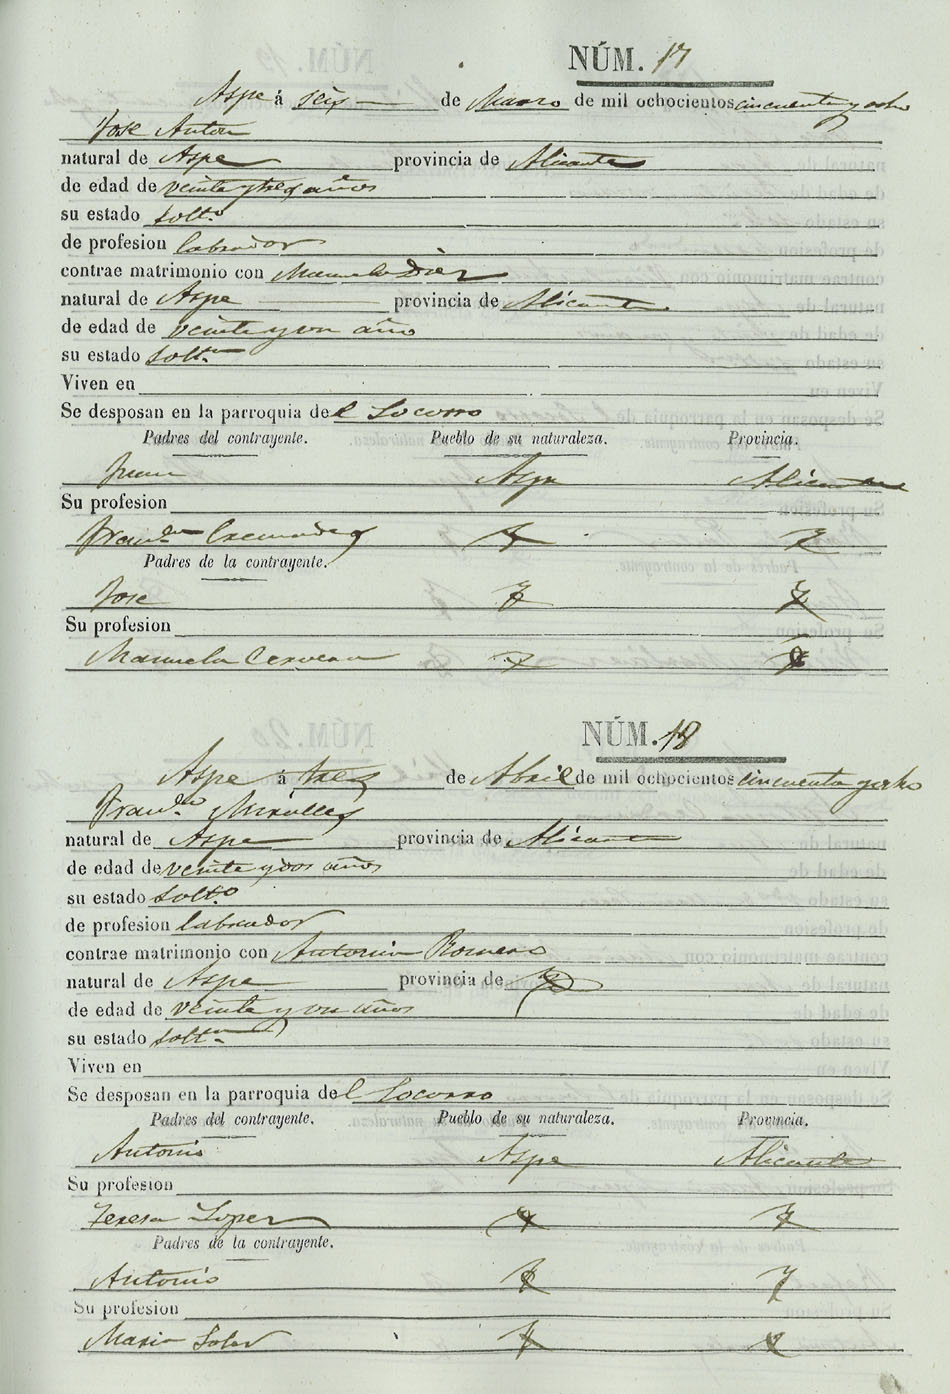 NÚM. 17
Aspe á seis de Marzo de mil ochocientos cincuenta y ocho
Jose Anton
natural de Aspe provincia de Alicante
de edad de veinte y tres años
su estado solt.º
de profesion labrador
contrae matrimonio con Manuela Diez
natural de Aspe provincia de Alicante
de edad de veinte y un año
su estado solt.ª
Viven en
Se desposan en la parroquia del Socorro
Padres del contrayente. Pueblo de su naturaleza. Provincia.
Juan Aspe Alicante
Su profesion
Fran.ca Cremades
Padres de la contrayente.
Jose
Su profesion
Manuela Cervera
NÚM. 18
Aspe á tres de Abril de mil ochocientos cincuenta y ocho
Fran.co Miralles
natural de Aspe provincia de Alicante
de edad de veinte y dos años
su estado solt.º
de profesion labrador
contrae matrimonio con Antonia Romero
natural de Aspe provincia de
de edad de veinte y un años
su estado solt.ª
Viven en
Se desposan en la parroquia del Socorro
Padres del contrayente. Pueblo de su naturaleza. Provincia.
Antonio Aspe Alicante
Su profesion
Teresa Lopez
Padres de la contrayente.
Antonio
Su profesion
Maria Soler